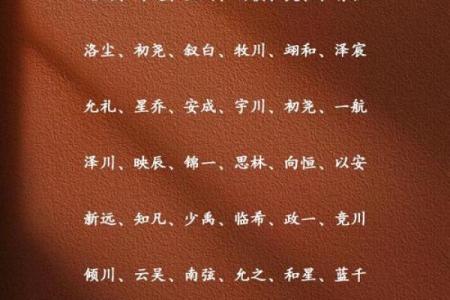 洛尘、初尧、叙白、牧川、翊和、泽宸
允礼、星乔、安成、宇川、初尧、一航
泽川、映辰、锦一、思林、向恒、以安
新远、知凡、少禹、临希、政一、竞川
倾川、云吴、南弦、允之、和星、蓝千